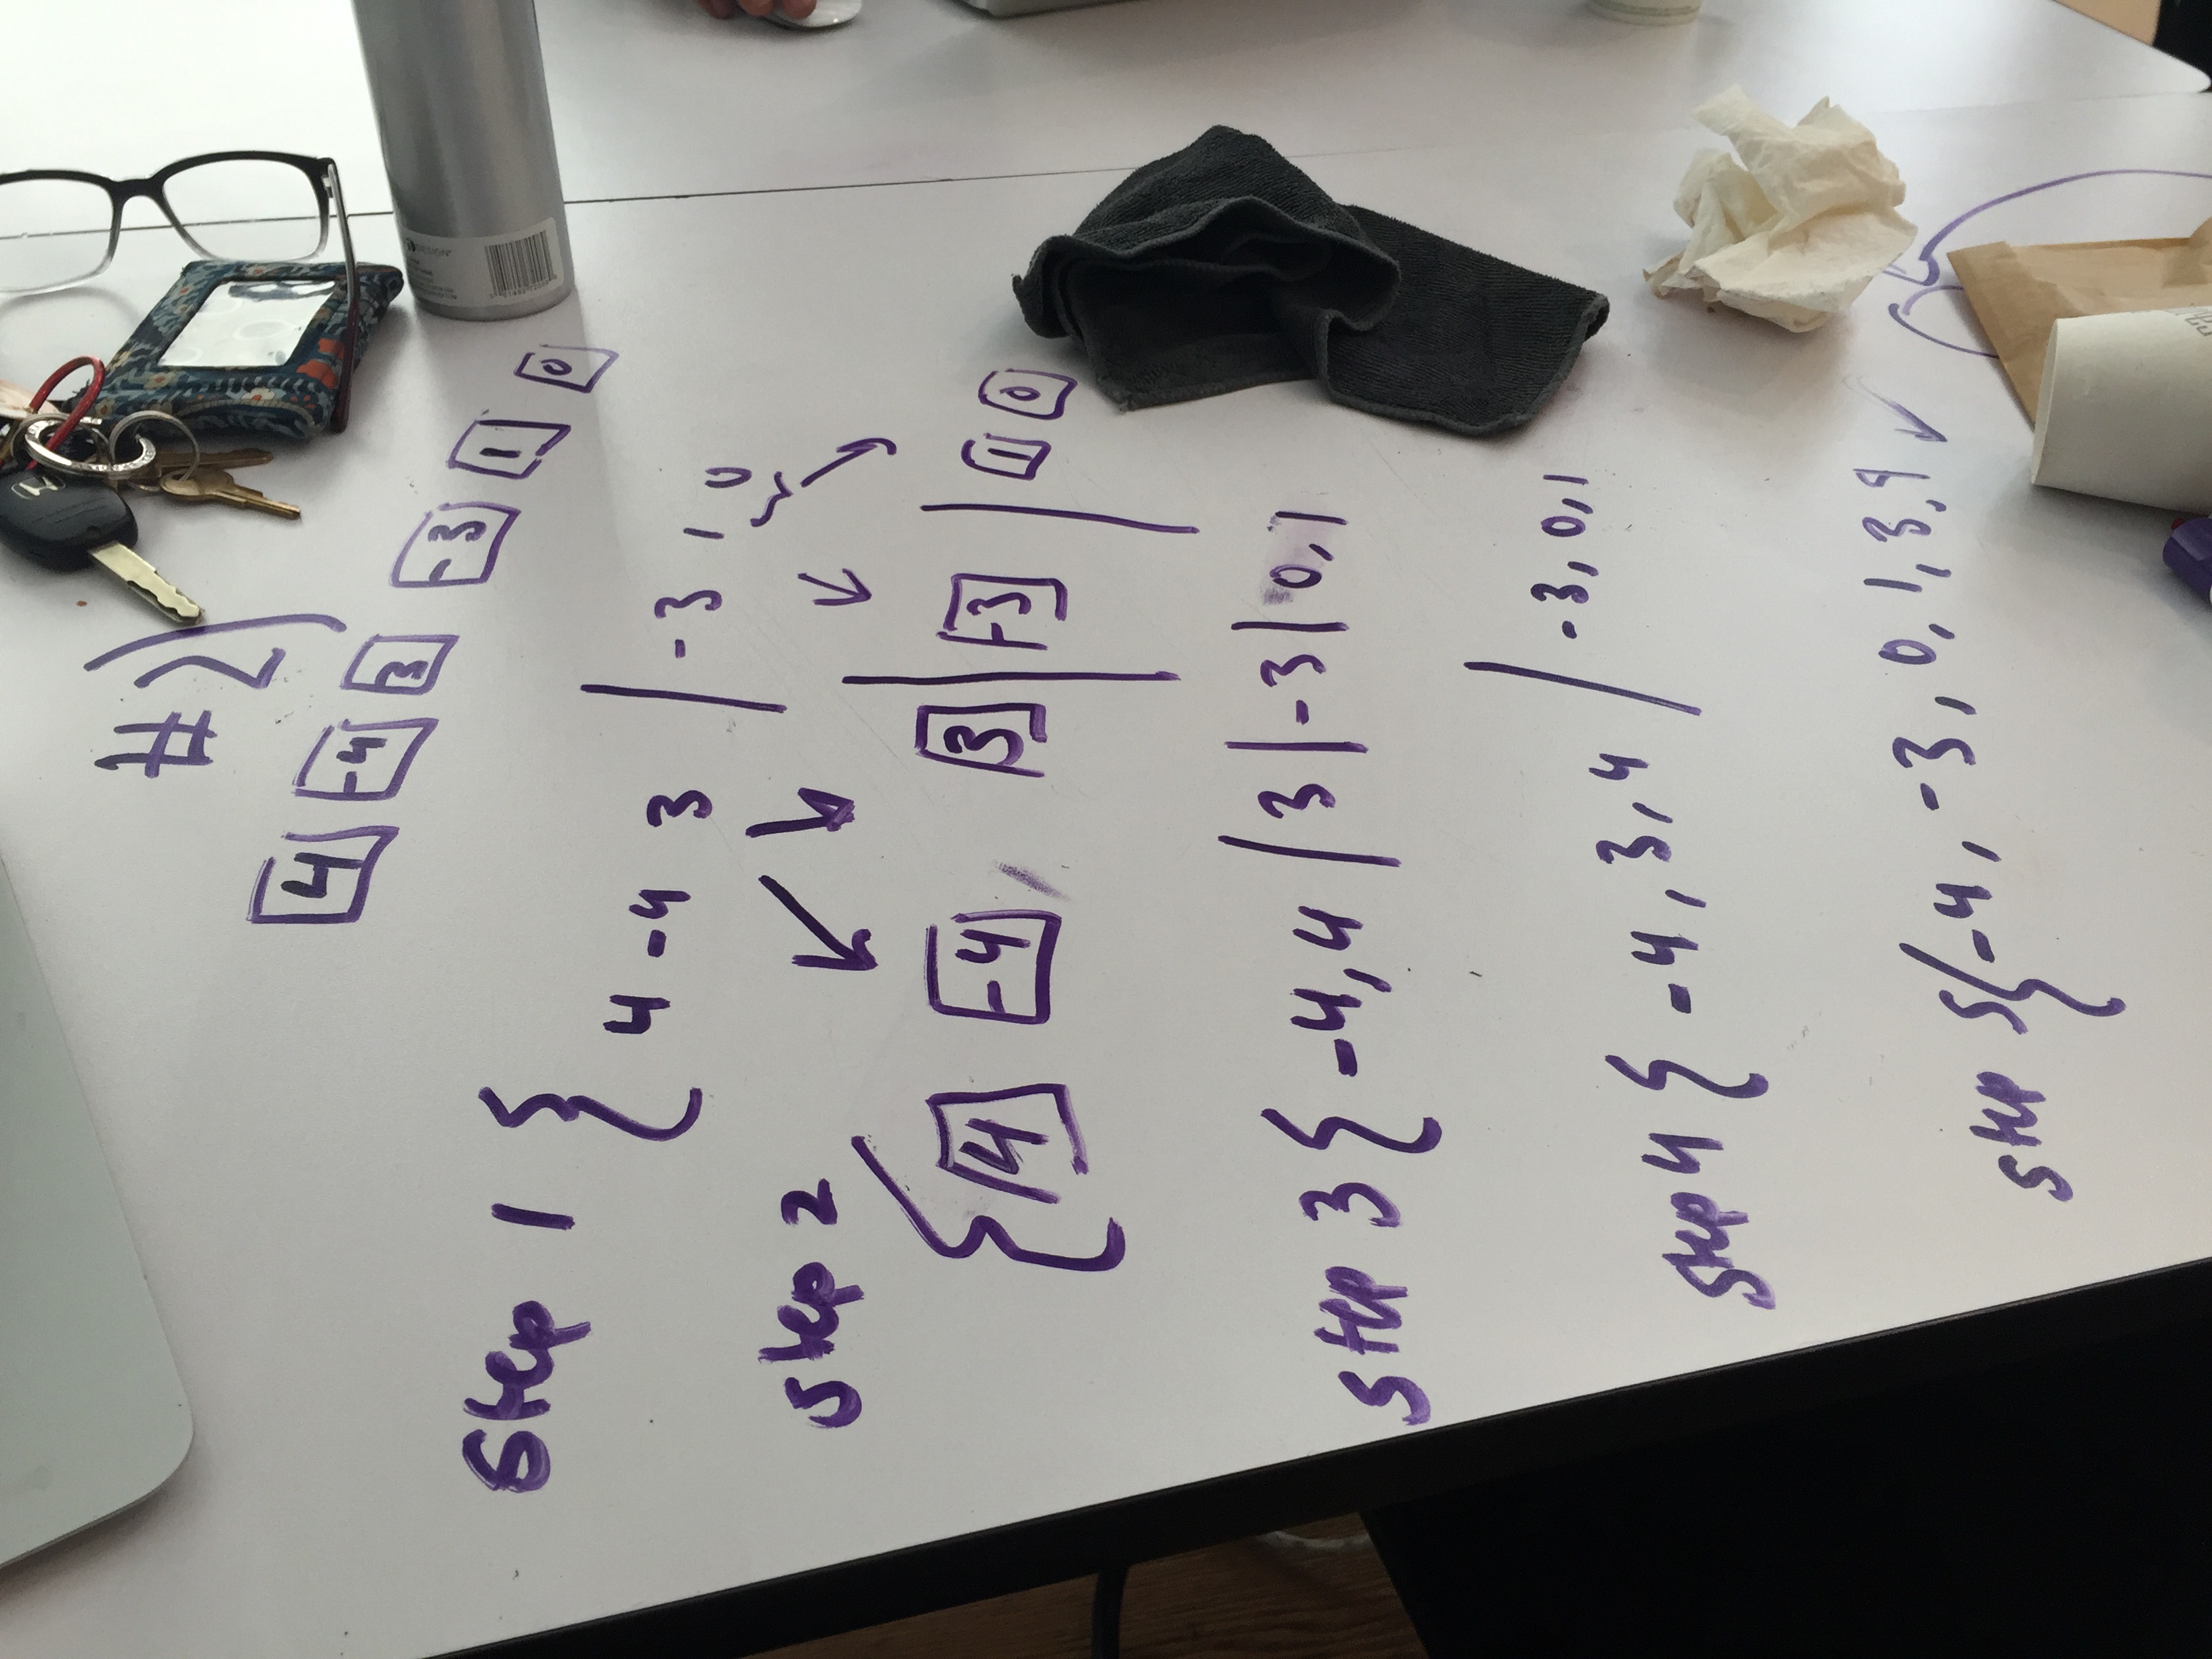 #2)
4 -4 3 -3 1 0
Step 1 { 4 -4 3 | -3 1 0
Step 2
{ 4 -4 | 3 | -3 | 1 0
Step 3 { -4, 4 | 3 | -3 | 0, 1
Step 4 { -4, 3, 4 | -3, 0, 1
Step 5 { -4, -3, 0, 1, 3, 4